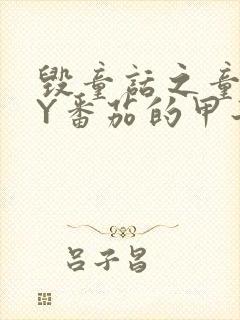 毁童话之童
Y番茄的甲
吕子昌